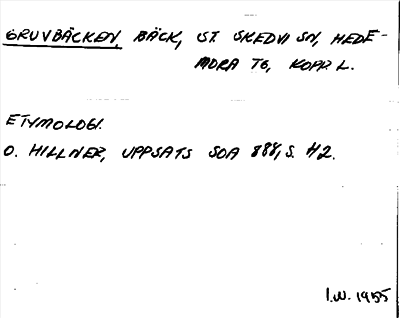 GRUVBÄCKEN, BÄCK, ST. SKEDVI SN, HEDE-
MORA TG, KOPP. L.
ETYMOLOGI.
O. HILLNER, UPPSATS SOA 888, S. 42.
I.W. 1955